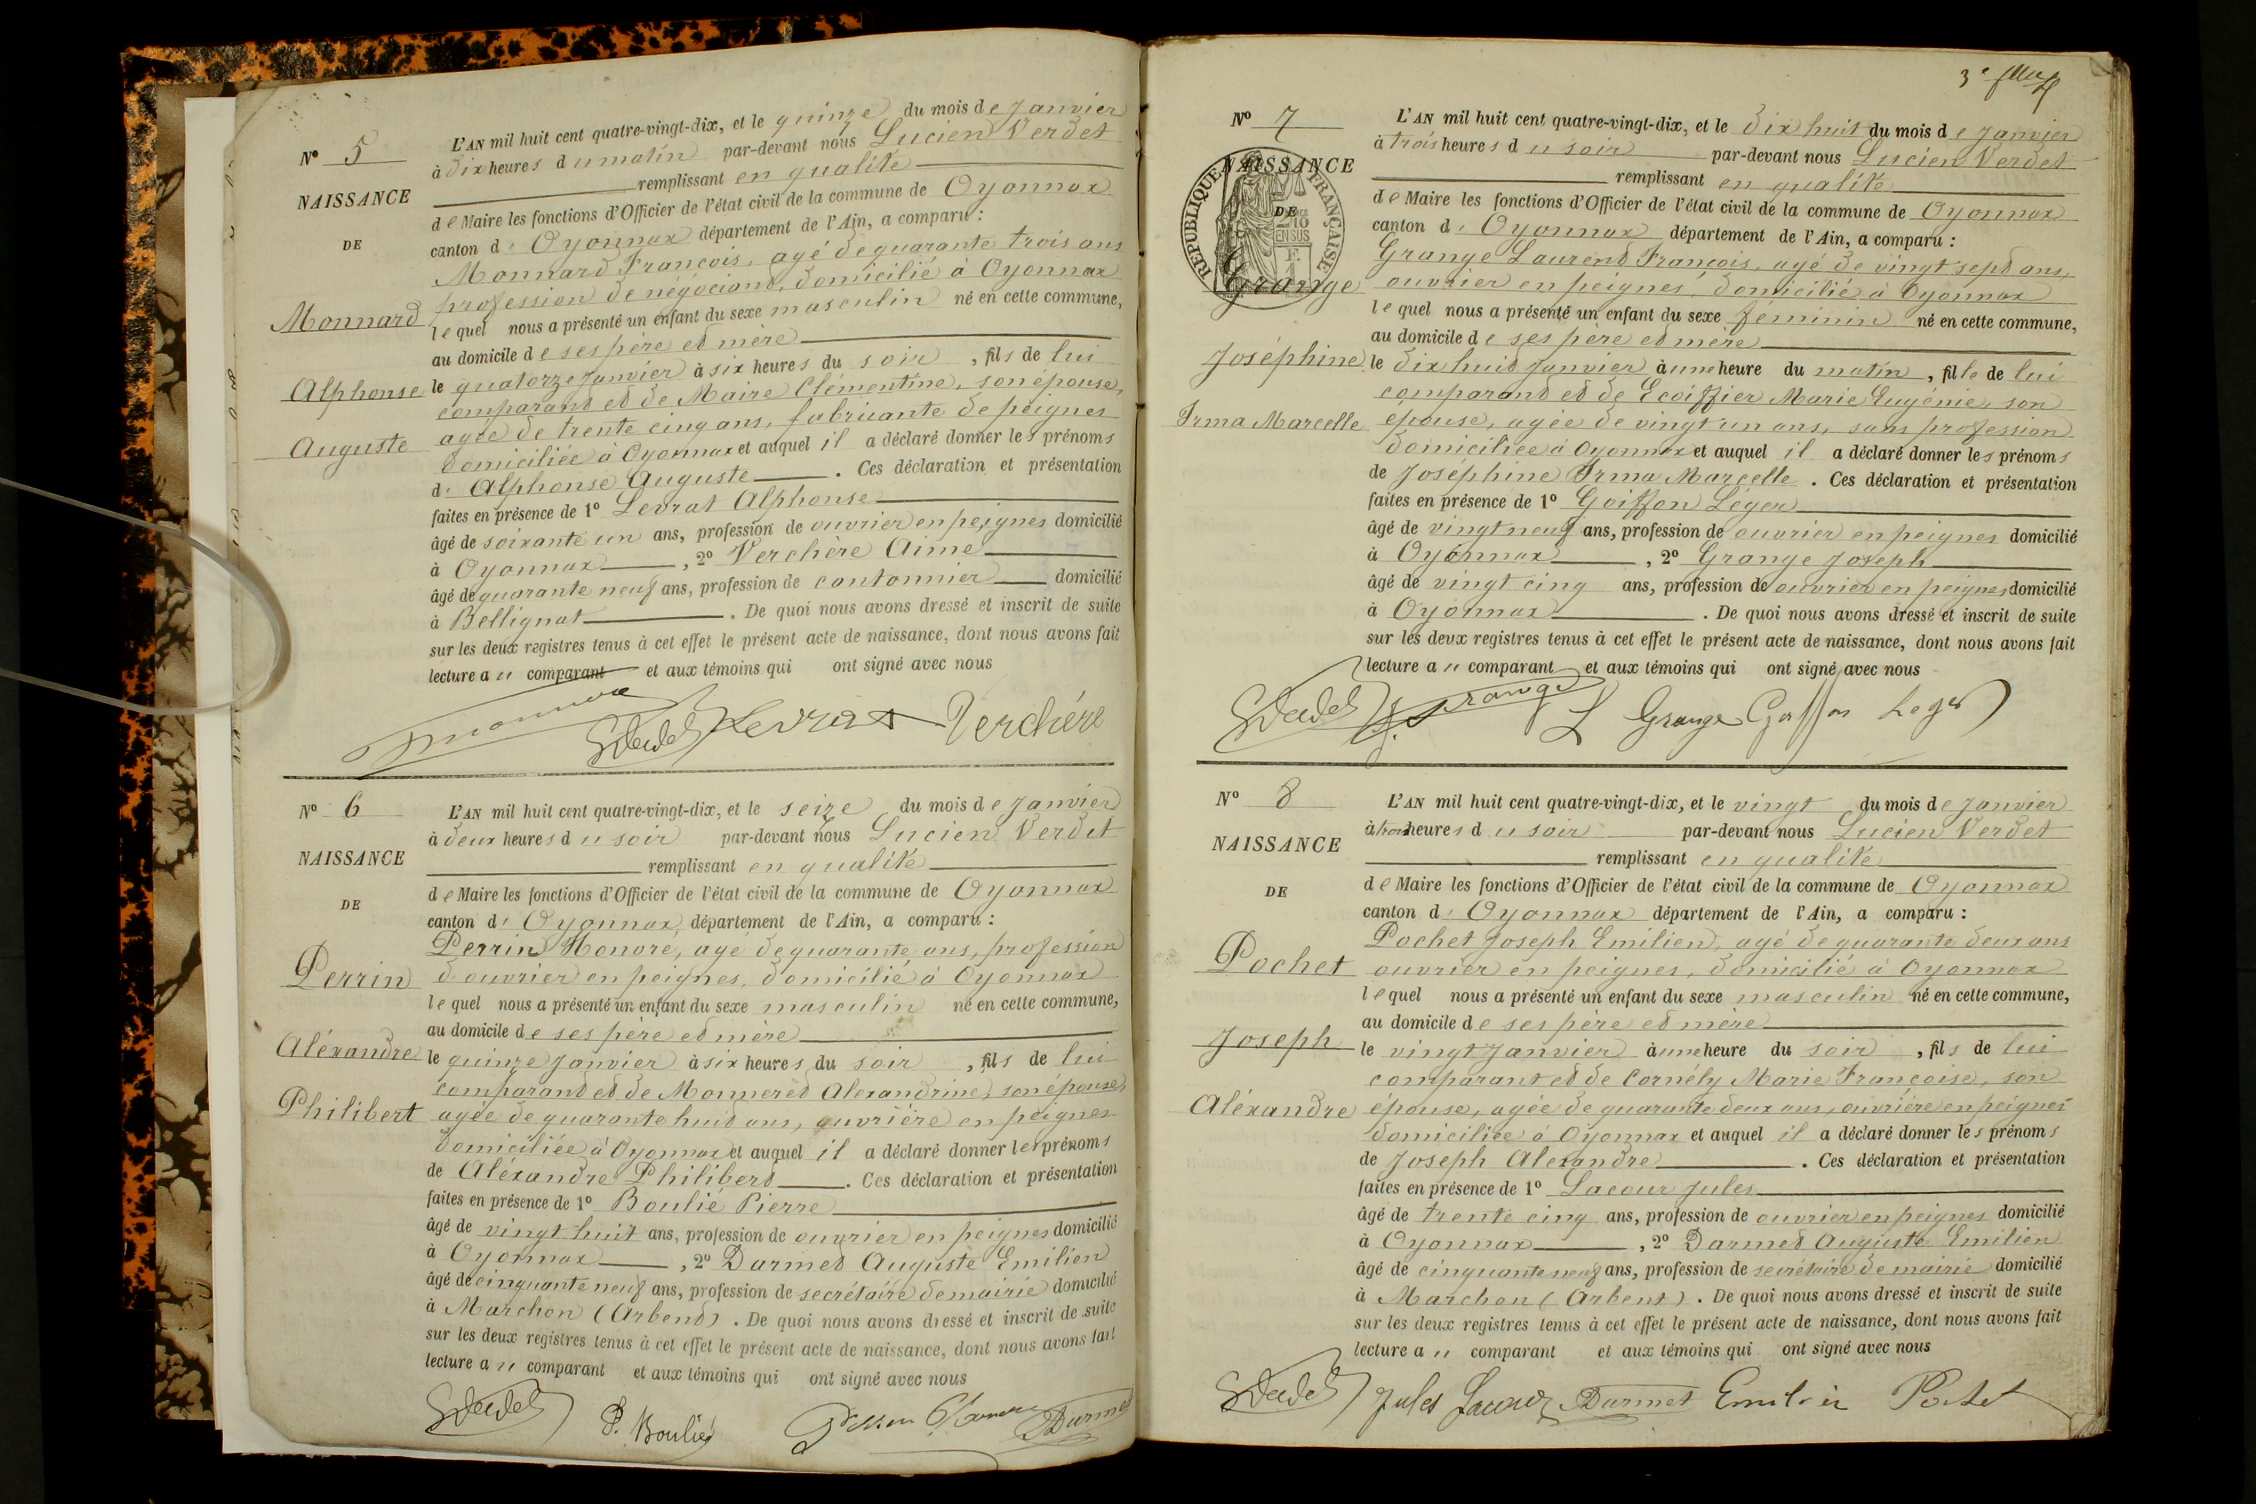 N° 5
NAISSANCE
DE
Monnard
Alphonse
Auguste
L'AN mil huit cent quatre-vingt-dix, et le quinze du mois de Janvier
à dix heures du matin par-devant nous Lucien Verdet
remplissant en qualité
de Maire les fonctions d'Officier de l'état civil de la commune de Oyonnax
canton d' Oyonnax département de l'Ain, a comparu :
Monnard François, agé de quarante trois ans
profession de négociant, domicilié à Oyonnax
lequel nous a présenté un enfant du sexe masculin né en cette commune,
au domicile de ses père et mère
le quatorze Janvier à six heures du soir, fils de lui
comparant et de Maire Clémentine, son épouse,
agée de trente cinq ans, fabricante de peignes
domiciliée à Oyonnax et auquel il a déclaré donner les prénoms
d' Alphonse Auguste. Ces déclaration et présentation
faites en présence de 1° Levrat Alphonse
âgé de soixante un ans, profession de ouvrier en peignes domicilié
à Oyonnax, 2° Verchère Aimé
âgé de quarante neuf ans, profession de cantonnier domicilié
à Bellignat. De quoi nous avons dressé et inscrit de suite
sur les deux registres tenus à cet effet le présent acte de naissance, dont nous avons fait
lecture au comparant et aux témoins qui ont signé avec nous
Monnard Verdet Levrat Verchère
N° 6
NAISSANCE
DE
Perrin
Aléxandre
Philibert
L'AN mil huit cent quatre-vingt-dix, et le seize du mois de Janvier
à deux heures du soir par-devant nous Lucien Verdet
remplissant en qualité
de Maire les fonctions d'Officier de l'état civil de la commune de Oyonnax
canton d' Oyonnax département de l'Ain, a comparu :
Perrin Honoré, agé de quarante ans, profession
d'ouvrier en peignes, domicilié à Oyonnax
lequel nous a présenté un enfant du sexe masculin né en cette commune,
au domicile de ses père et mère
le quinze Janvier à six heures du soir, fils de lui
comparant et de Monneret Alexandrine, son épouse,
agée de quarante huit ans, ouvrière en peignes
domiciliée à Oyonnax et auquel il a déclaré donner les prénoms
de Aléxandre Philibert. Ces déclaration et présentation
faites en présence de 1° Boulié Pierre
âgé de vingt huit ans, profession de ouvrier en peignes domicilié
à Oyonnax, 2° Darmet Auguste Emilien
âgé de cinquante neuf ans, profession de secrétaire de mairie domicilié
à Marchon (Arbent). De quoi nous avons dressé et inscrit de suite
sur les deux registres tenus à cet effet le présent acte de naissance, dont nous avons fait
lecture au comparant et aux témoins qui ont signé avec nous
Verdet P. Boulié Perrin Honoré Darmet
3e
N° 7
NAISSANCE
DE
RÉPUBLIQUE FRANÇAISE
2/10 EN SUS
Grange
Joséphine
Irma Marcelle
L'AN mil huit cent quatre-vingt-dix, et le dix huit du mois de Janvier
à trois heures du soir par-devant nous Lucien Verdet
remplissant en qualité
de Maire les fonctions d'Officier de l'état civil de la commune de Oyonnax
canton d' Oyonnax département de l'Ain, a comparu :
Grange Laurent François, agé de vingt sept ans,
ouvrier en peignes, domicilié à Oyonnax
lequel nous a présenté un enfant du sexe féminin né en cette commune,
au domicile de ses père et mère
le dix huit Janvier à une heure du matin, fille de lui
comparant et de Ecoiffier Marie Eugénie, son
épouse, agée de vingt un ans, sans profession
domiciliée à Oyonnax et auquel il a déclaré donner les prénoms
de Joséphine Irma Marcelle. Ces déclaration et présentation
faites en présence de 1° Goiffon Léger
âgé de vingt neuf ans, profession de ouvrier en peignes domicilié
à Oyonnax, 2° Grange Joseph
âgé de vingt cinq ans, profession de ouvrier en peignes domicilié
à Oyonnax. De quoi nous avons dressé et inscrit de suite
sur les deux registres tenus à cet effet le présent acte de naissance, dont nous avons fait
lecture au comparant et aux témoins qui ont signé avec nous
Verdet J. Grange L Grange Goiffon Leger
N° 8
NAISSANCE
DE
Pochet
Joseph
Aléxandre
L'AN mil huit cent quatre-vingt-dix, et le vingt du mois de Janvier
à trois heures du soir par-devant nous Lucien Verdet
remplissant en qualité
de Maire les fonctions d'Officier de l'état civil de la commune de Oyonnax
canton d' Oyonnax département de l'Ain, a comparu :
Pochet Joseph Emilien, agé de quarante deux ans
ouvrier en peignes, domicilié à Oyonnax
lequel nous a présenté un enfant du sexe masculin né en cette commune,
au domicile de ses père et mère
le vingt Janvier à une heure du soir, fils de lui
comparant et de Cornély Marie Françoise, son
épouse, agée de quarante deux ans, ouvrière en peignes
domiciliée à Oyonnax et auquel il a déclaré donner les prénoms
de Joseph Alexandre. Ces déclaration et présentation
faites en présence de 1° Lacour Jules
âgé de trente cinq ans, profession de ouvrier en peignes domicilié
à Oyonnax, 2° Darmet Auguste Emilien
âgé de cinquante neuf ans, profession de secrétaire de mairie domicilié
à Marchon (Arbent). De quoi nous avons dressé et inscrit de suite
sur les deux registres tenus à cet effet le présent acte de naissance, dont nous avons fait
lecture au comparant et aux témoins qui ont signé avec nous
Verdet Jules Lacour Darmet Emilien Pochet